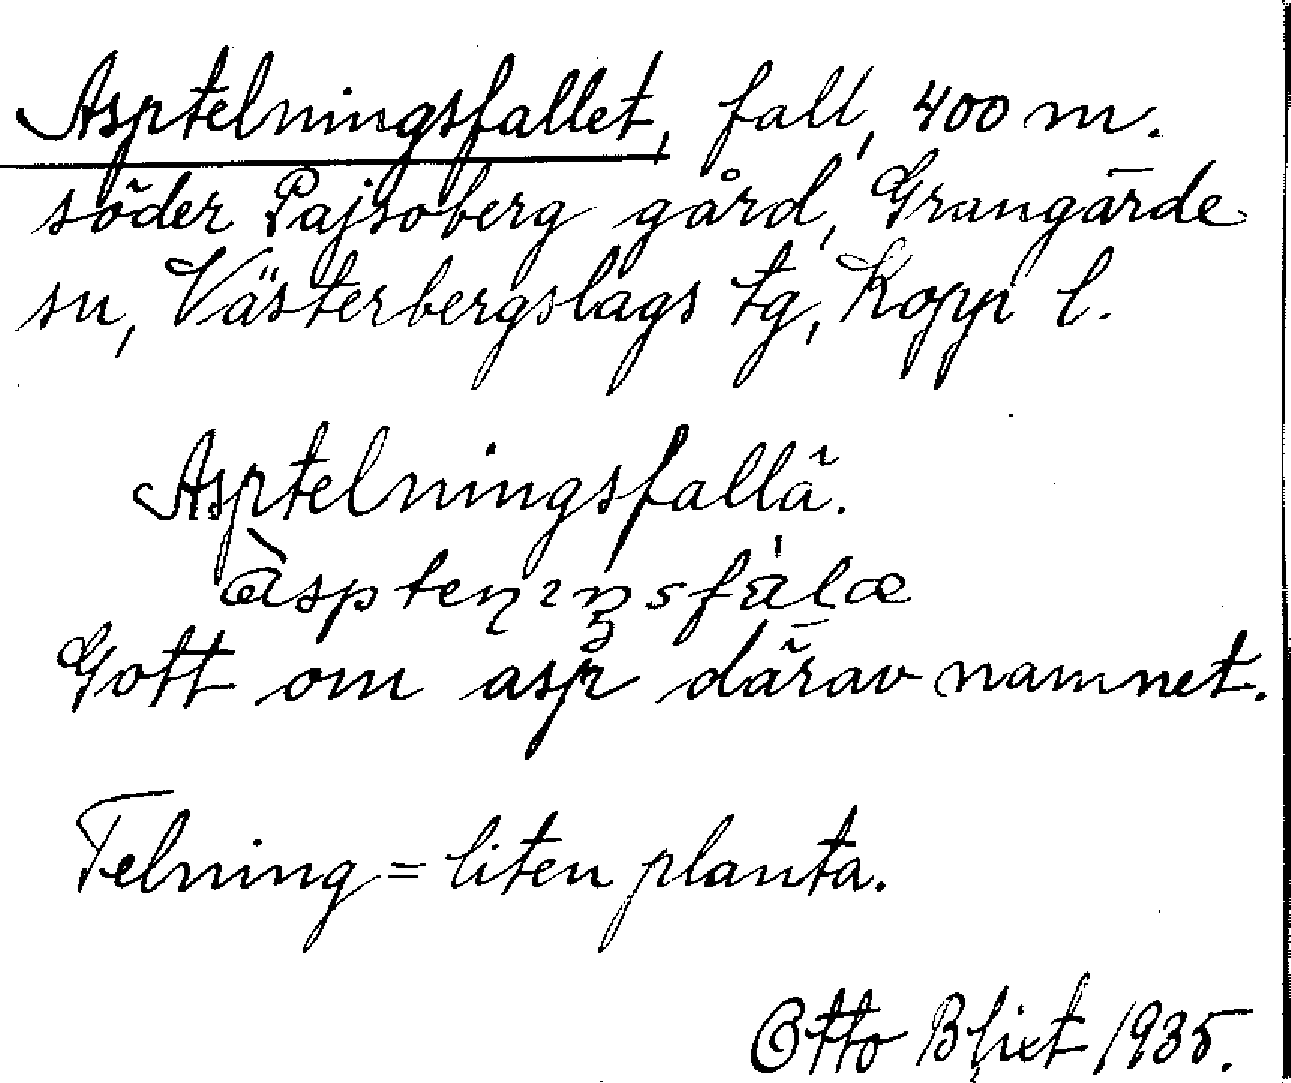 Asptelningsfallet, fall, 400 m.
söder Pajsoberg gård, Grangärde
sn, Västerbergslags tg, Kopp l.
Asptelningsfallä.
Gott om asp därav namnet.
Telning = liten planta.
Otto Blixt 1935.